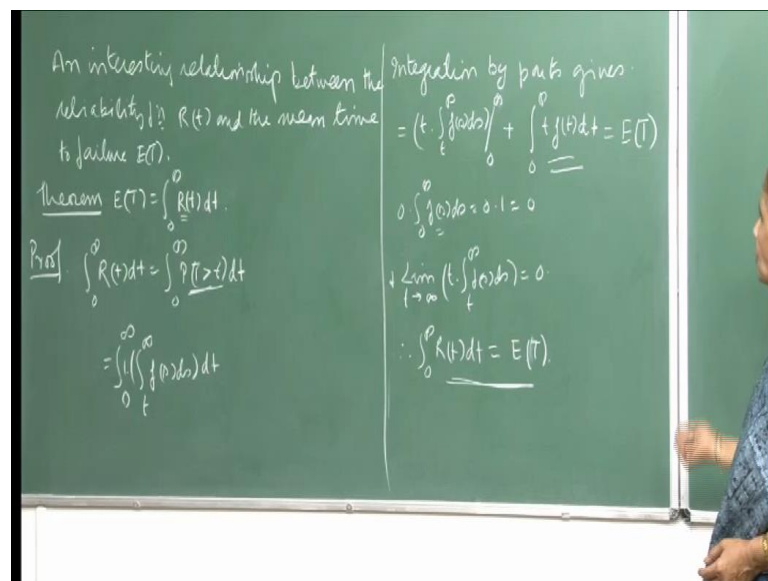 An interesting relationship between the
reliability fn R(t) and the mean time
to failure E(T).
Theorem E(T) = ∫₀^∞ R(t) dt.
Proof. ∫₀^∞ R(t) dt = ∫₀^∞ P(T > t) dt
= ∫₀^∞ 1.(∫ₜ^∞ f(s) ds) dt
Integration by parts gives.
= (t. ∫ₜ^∞ f(s) ds)|₀^∞ + ∫₀^∞ t f(t) dt = E(T)
0. ∫₀^∞ f(s) ds = 0.1 = 0
+ Lim t→∞ (t. ∫ₜ^∞ f(s) ds) = 0.
∴ ∫₀^∞ R(t) dt = E(T).